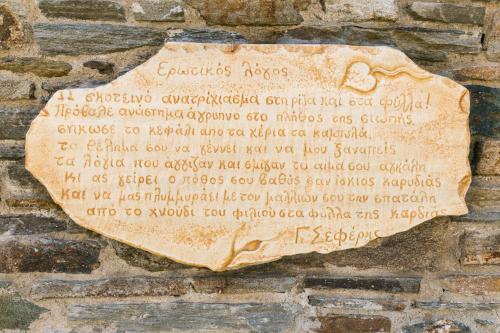 Ερωτικός λόγος
Ω σκοτεινό ανατρίχιασμα στη ρίζα και στα φύλλα!
Πρόβαλε ανάστημα άγρυπνο στο πλήθος της σιωπής
σήκωσε το κεφάλι από τα χέρια τα καμπύλα,
το θέλημά σου να γενεί και να μου ξαναπείς
τα λόγια που άγγιζαν και έσμιγαν το αίμα σου αγκάλη
κι ας γείρει ο πόθος σου βαθύς σαν ίσκιος καρυδιάς
και να μας πλημμυράει με των μαλλιών σου την σπατάλη
από το χνούδι του φιλιού στα φύλλα της καρδιάς
Γ. Σεφέρης